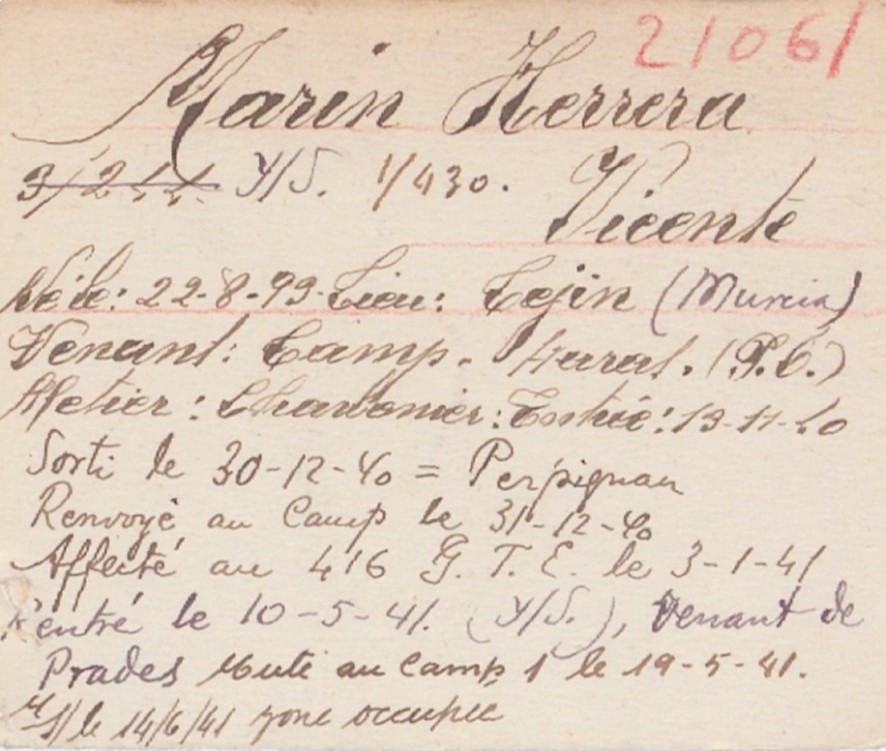 21061
Marin Herrera
Y/S. 1/430. Vicente
Né le: 22-8-93 Lieu: Cejin (Murcia)
Venant: Camp. Haras. (P.C.)
Metier: Charbonier: Entrée: 13-11-40
Sorti le 30-12-40 = Perpignan
Renvoyé au Camp le 31-12-40
Affecté au 416 G. T. E. le 3-1-41
Rentré le 10-5-41. (Y/S.), venant de
Prades Muté au Camp 1 le 19-5-41.
le 14/6/41 zone occupée